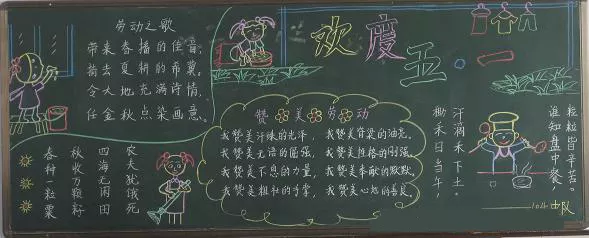 劳动之歌
带来春播的佳音,
摘去夏耕的希冀,
令大地充满诗情,
任金秋点染画意。
欢度五·一
赞美劳动
我赞美汗珠的光泽,
我赞美无语的倔强,
我赞美不息的力量,
我赞美粗壮的手掌,
我赞美脊梁的油亮,
我赞美性格的刚强,
我赞美奉献的默默,
我赞美心地的善良
春种一粒粟
秋收万颗籽
四海无闲田
农夫犹饿死
锄禾日当午,
汗滴禾下土。
谁知盘中餐,
粒粒皆辛苦。
中队